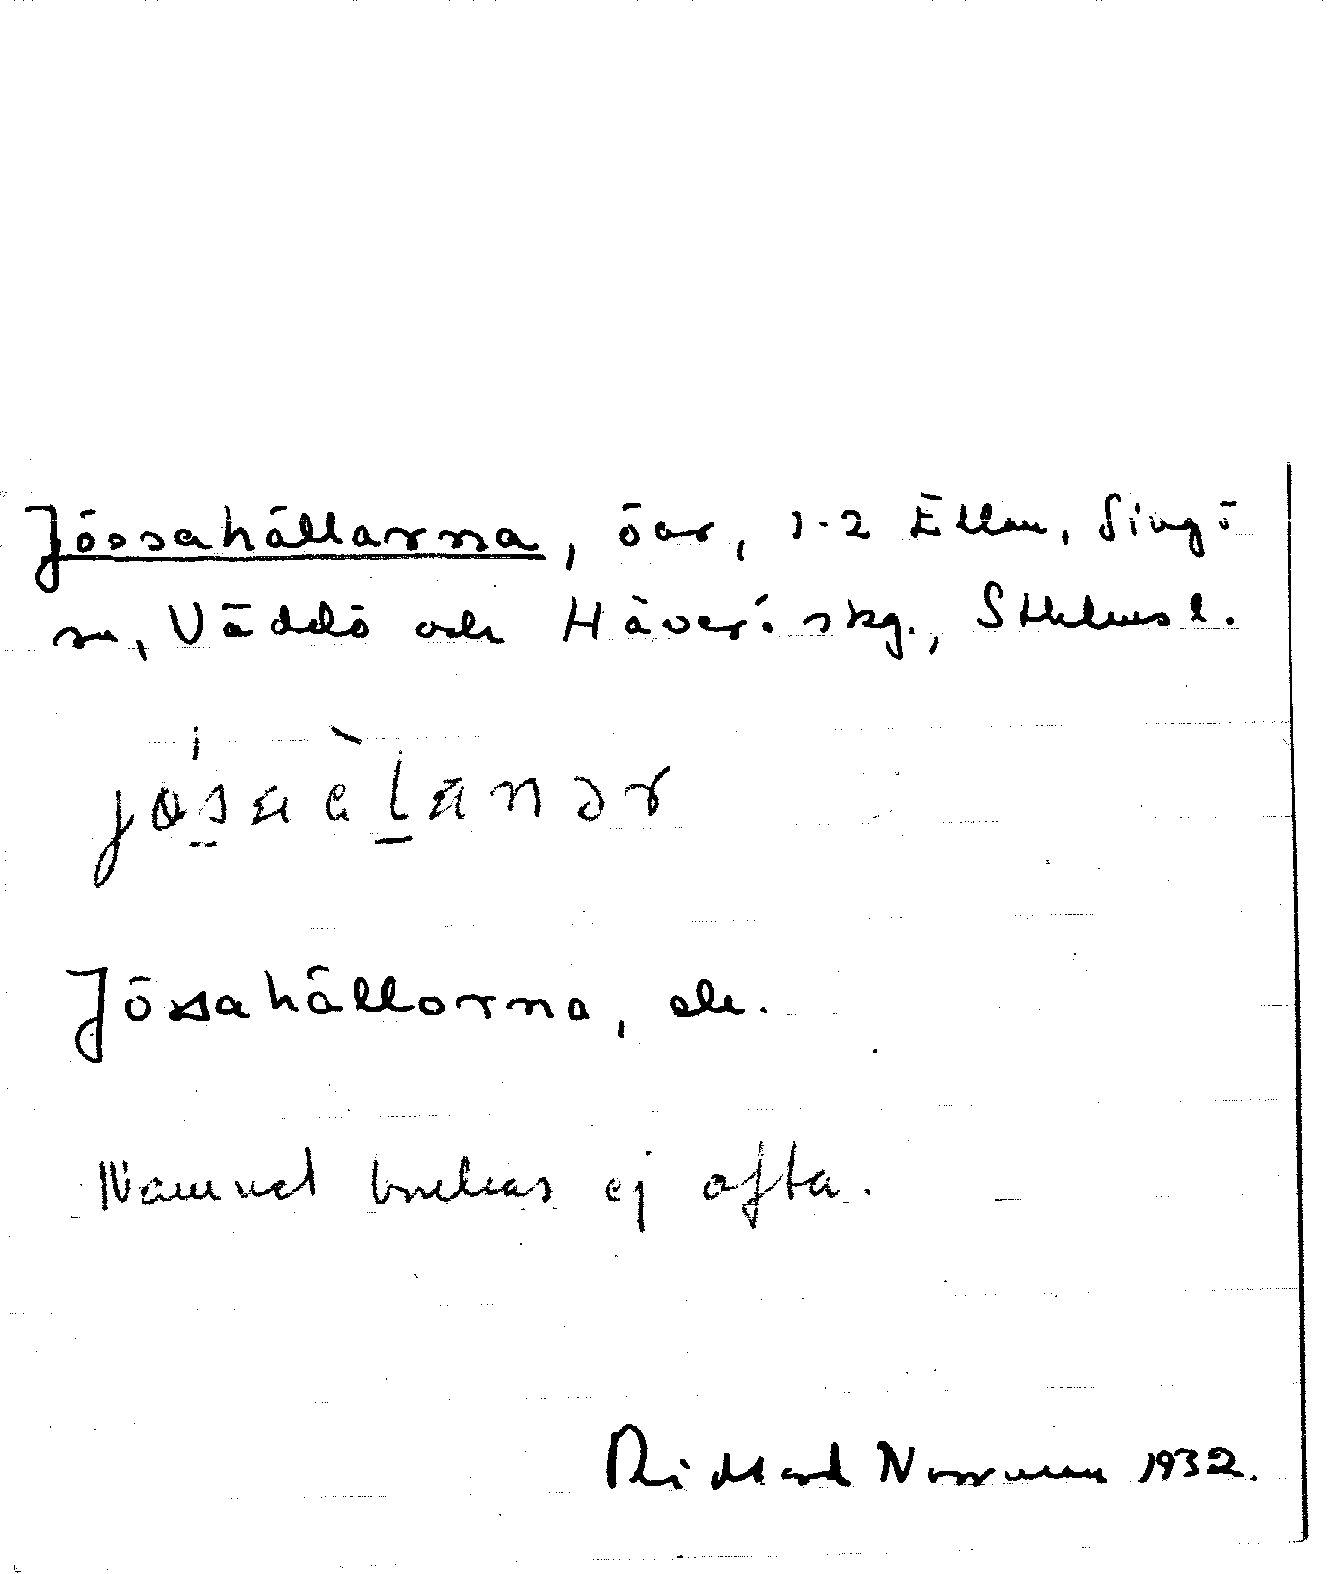 Jössahällarna, öar, 1-2 Ellan, Singö
sn, Väddö och Häverö skg., Sthlms l.
Jössahällorna, ek.
Namnet brukas ej ofta.
Rickard Norrman 1932.